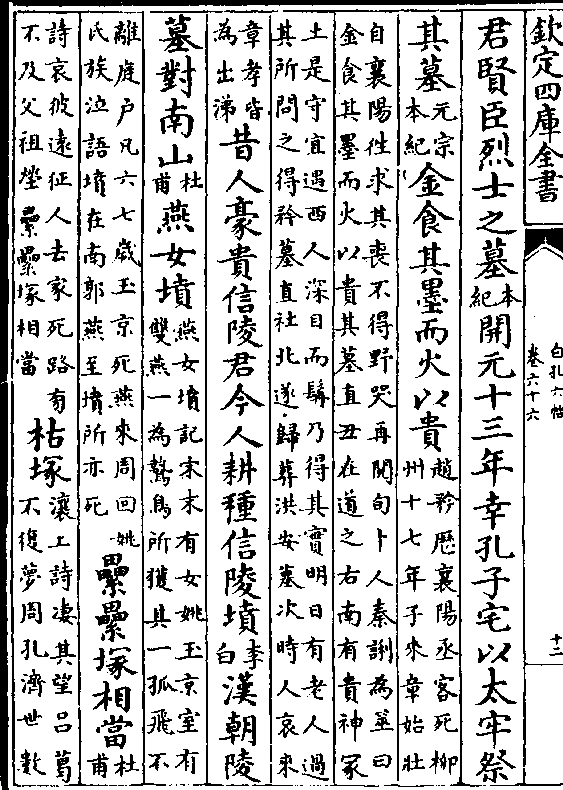 欽定四庫全書
白孔六帖
卷六十六
十二
君賢臣烈士之墓本紀開元十三年幸孔子宅以太牢祭
其墓元宗本紀金食其墨而火以貴趙矜歴襄陽丞客死柳州十七年子來章始壯
自襄陽徃求其喪不得野哭再閱旬卜人秦誗為筮曰
金食其墨而火以貴其墓直丑在道之右南有貴神冢
土是守宜遇西人深目而髯乃得其實明日有老人過
其所問之得矜墓直社北遂歸葬洪安墓次時人哀來
章孝皆為出涕昔人豪貴信陵君今人耕種信陵墳李白漢朝陵
墓對南山杜甫燕女墳燕女墳記宋末有女姚玉京室有雙燕一為鷙鳥所獲其一孤飛不
離庭户凡六七歳玉京死燕來周回姚氏族泣語墳在南郭燕至墳所亦死纍纍塚相當杜甫
詩哀彼遠征人去家死路有不及父祖塋纍纍塚相當枯塚瀼上詩凄其望吕葛不復夢周孔濟世數